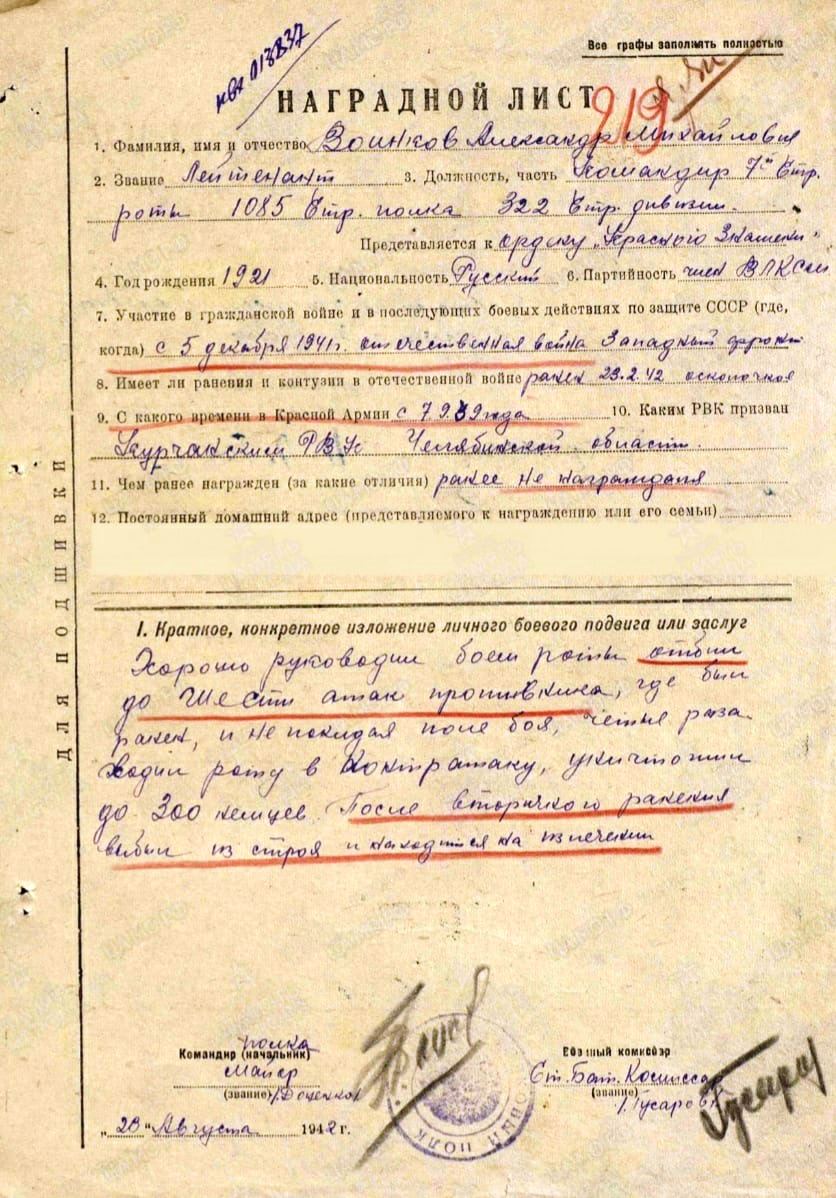 Все графы заполнять полностью
НАГРАДНОЙ ЛИСТ
219
1. Фамилия, имя и отчество Воинков Александр Михайлович
2. Звание Лейтенант 3. Должность, часть Командир 7й Стр.
роты 1085 Стр. полка 322 Стр. дивизии.
Представляется к ордену „Красного Знамени"
4. Год рождения 1921 5. Национальность Русский 6. Партийность член ВЛКСМ
7. Участие в гражданской войне и в последующих боевых действиях по защите СССР (где,
когда) с 5 декабря 1941г. отечественная война Западный фронт
8. Имеет ли ранения и контузии в отечественной войне ранен 23.2.42 осколочное
9. С какого времени в Красной Армии с 1939 года 10. Каким РВК призван
РВК Челябинской области.
11. Чем ранее награжден (за какие отличия) ранее не награждался
12. Постоянный домашний адрес (представляемого к награждению или его семьи)
ДЛЯ ПОДШИВКИ
I. Краткое, конкретное изложение личного боевого подвига или заслуг
Хорошо руководил боем роты отбил
до шести атак противника, где был
ранен, и не покидая поле боя, четыре раза
водил роту в контратаку, уничтожил
до 300 немцев. После вторичного ранения
выбыл из строя и находится на излечении
полка
Командир (начальник)
Майор
(звание) /Доценко/
„20" Августа 1942 г.
Военный комиссар
Ст. Бат. Комиссар
(звание)
/Гусаров/
Гусаров